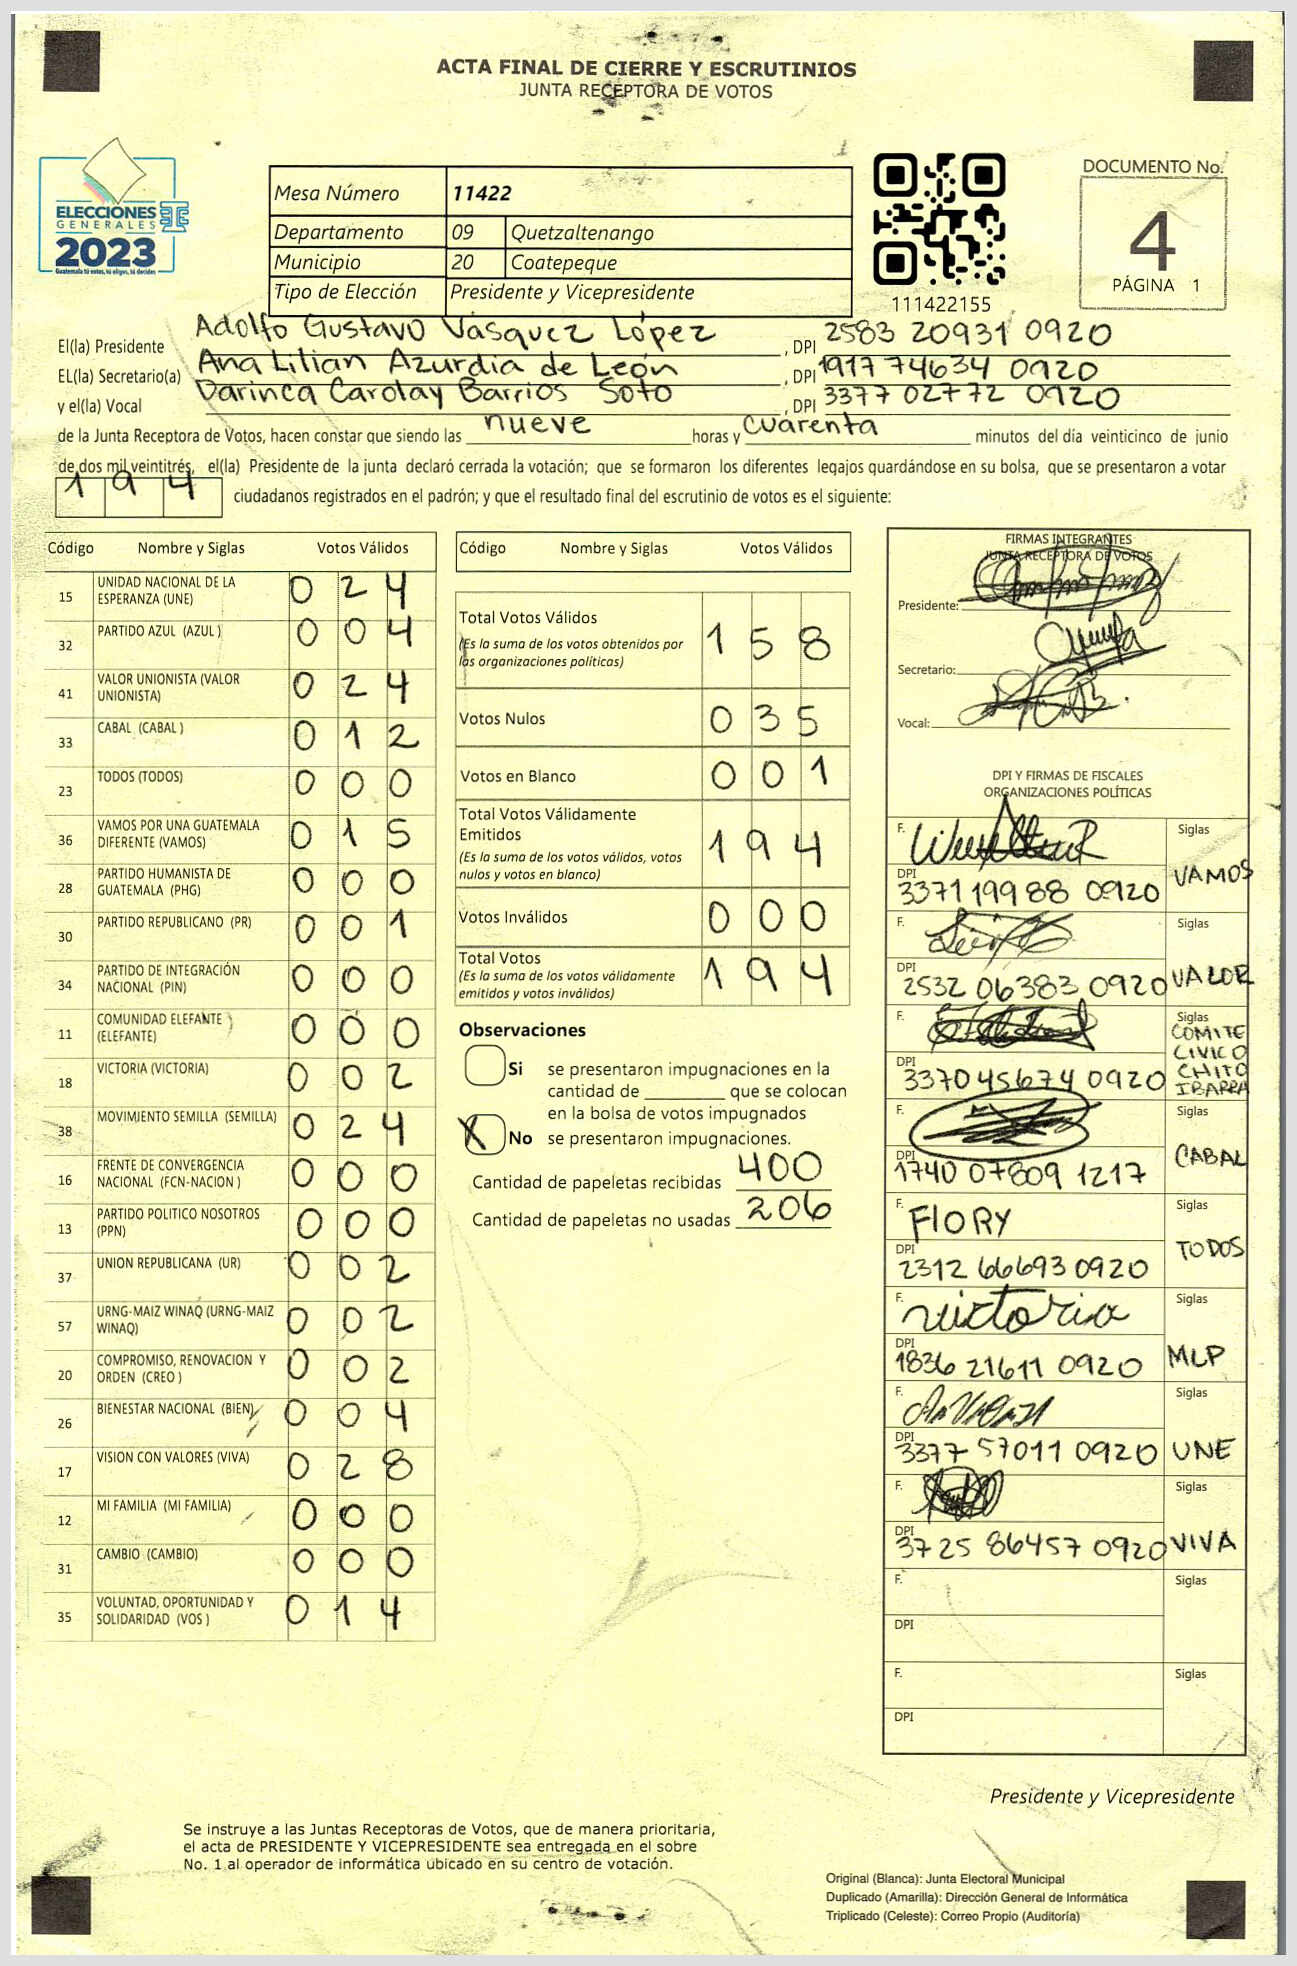 ACTA FINAL DE CIERRE Y ESCRUTINIOS
JUNTA RECEPTORA DE VOTOS
ELECCIONES
GENERALES
2023
Guatemala tú votas, tú eliges, tú decides
Mesa Número 11422
Departamento 09 Quetzaltenango
Municipio 20 Coatepeque
Tipo de Elección Presidente y Vicepresidente
111422155
DOCUMENTO No.
4
PÁGINA 1
El(la) Presidente Adolfo Gustavo Vásquez López, DPI 2583 20931 0920
EL(la) Secretario(a) Ana Lilian Azurdia de León, DPI 1917 74634 0920
y el(la) Vocal Darinca Carolay Barrios Soto, DPI 3377 02772 0920
de la Junta Receptora de Votos, hacen constar que siendo las nueve horas y cuarenta minutos del día veinticinco de junio
de dos mil veintitrés, el(la) Presidente de la junta declaró cerrada la votación; que se formaron los diferentes legajos guardándose en su bolsa, que se presentaron a votar
194 ciudadanos registrados en el padrón; y que el resultado final del escrutinio de votos es el siguiente:
Código Nombre y Siglas Votos Válidos
15 UNIDAD NACIONAL DE LA ESPERANZA (UNE) 024
32 PARTIDO AZUL (AZUL ) 004
41 VALOR UNIONISTA (VALOR UNIONISTA) 024
33 CABAL (CABAL ) 012
23 TODOS (TODOS) 000
36 VAMOS POR UNA GUATEMALA DIFERENTE (VAMOS) 015
28 PARTIDO HUMANISTA DE GUATEMALA (PHG) 000
30 PARTIDO REPUBLICANO (PR) 001
34 PARTIDO DE INTEGRACIÓN NACIONAL (PIN) 000
11 COMUNIDAD ELEFANTE (ELEFANTE) 000
18 VICTORIA (VICTORIA) 002
38 MOVIMIENTO SEMILLA (SEMILLA) 024
16 FRENTE DE CONVERGENCIA NACIONAL (FCN-NACION ) 000
13 PARTIDO POLITICO NOSOTROS (PPN) 000
37 UNION REPUBLICANA (UR) 002
57 URNG-MAIZ WINAQ (URNG-MAIZ WINAQ) 002
20 COMPROMISO, RENOVACION Y ORDEN (CREO ) 002
26 BIENESTAR NACIONAL (BIEN) 004
17 VISION CON VALORES (VIVA) 028
12 MI FAMILIA (MI FAMILIA) 000
31 CAMBIO (CAMBIO) 000
35 VOLUNTAD, OPORTUNIDAD Y SOLIDARIDAD (VOS ) 014
Código Nombre y Siglas Votos Válidos
Total Votos Válidos 158
(Es la suma de los votos obtenidos por
las organizaciones políticas)
Votos Nulos 035
Votos en Blanco 001
Total Votos Válidamente
Emitidos 194
(Es la suma de los votos válidos, votos
nulos y votos en blanco)
Votos Inválidos 000
Total Votos 194
(Es la suma de los votos válidamente
emitidos y votos inválidos)
Observaciones
Si se presentaron impugnaciones en la
cantidad de ________ que se colocan
en la bolsa de votos impugnados
X No se presentaron impugnaciones.
Cantidad de papeletas recibidas 400
Cantidad de papeletas no usadas 206
FIRMAS INTEGRANTES
JUNTA RECEPTORA DE VOTOS
Presidente:
Secretario:
Vocal:
DPI Y FIRMAS DE FISCALES
ORGANIZACIONES POLÍTICAS
F. Siglas
DPI 3371 199 88 0920 VAMOS
F. Siglas
DPI 2532 06383 0920 VALOR
F. Siglas
COMITE
CIVICO
CHITO
IBARRA
DPI 3370 45674 0920
F. Siglas
DPI 1740 07809 1217 CABAL
F. FlORY Siglas
DPI 2312 66693 0920 TODOS
F. victoria Siglas
DPI 1836 21611 0920 MLP
F. Siglas
DPI 3377 57011 0920 UNE
F. Siglas
DPI 3725 86457 0920 VIVA
F. Siglas
DPI
F. Siglas
DPI
Presidente y Vicepresidente
Se instruye a las Juntas Receptoras de Votos, que de manera prioritaria,
el acta de PRESIDENTE Y VICEPRESIDENTE sea entregada en el sobre
No. 1 al operador de informática ubicado en su centro de votación.
Original (Blanca): Junta Electoral Municipal
Duplicado (Amarilla): Dirección General de Informática
Triplicado (Celeste): Correo Propio (Auditoría)